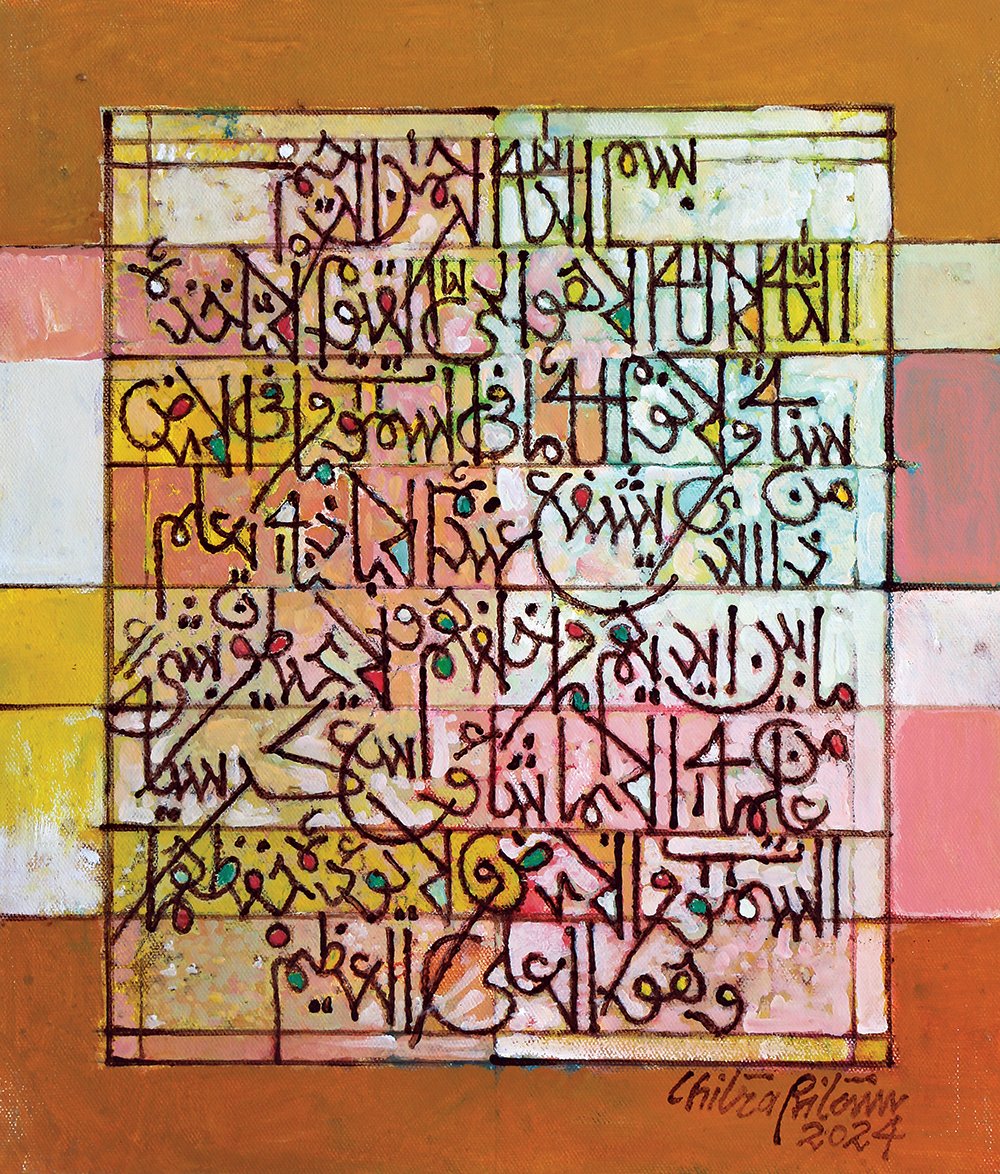 بسم الله الرحمن الرحيم
الله لا اله الا هو الحي القيوم لا تاخذه
سنة ولا نوم له ما في السموت وما في الارض
من ذا الذي يشفع عنده الا باذنه يعلم
ما بين ايديهم وما خلفهم ولا يحيطون بشيء
من علمه الا بما شاء وسع كرسيه
السموت والارض ولا يوده حفظهما
وهو العلي العظيم
Chitra Pritam
2024